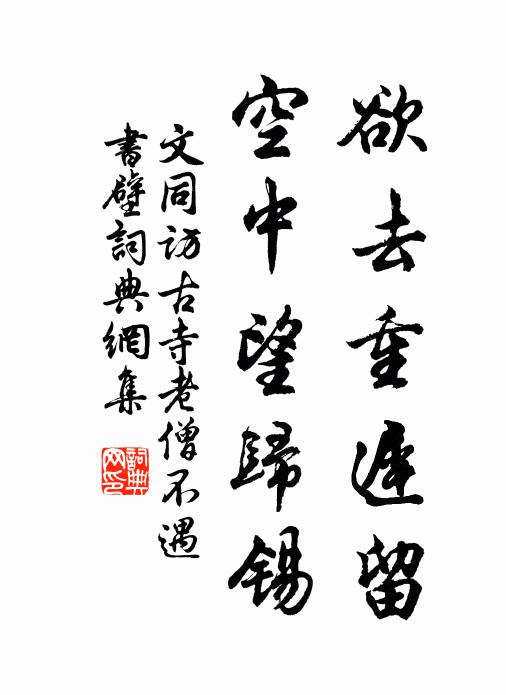 欲去重遲留
空中望歸錫
文同訪古寺老僧不遇
書壁詞典網集
詞典网印